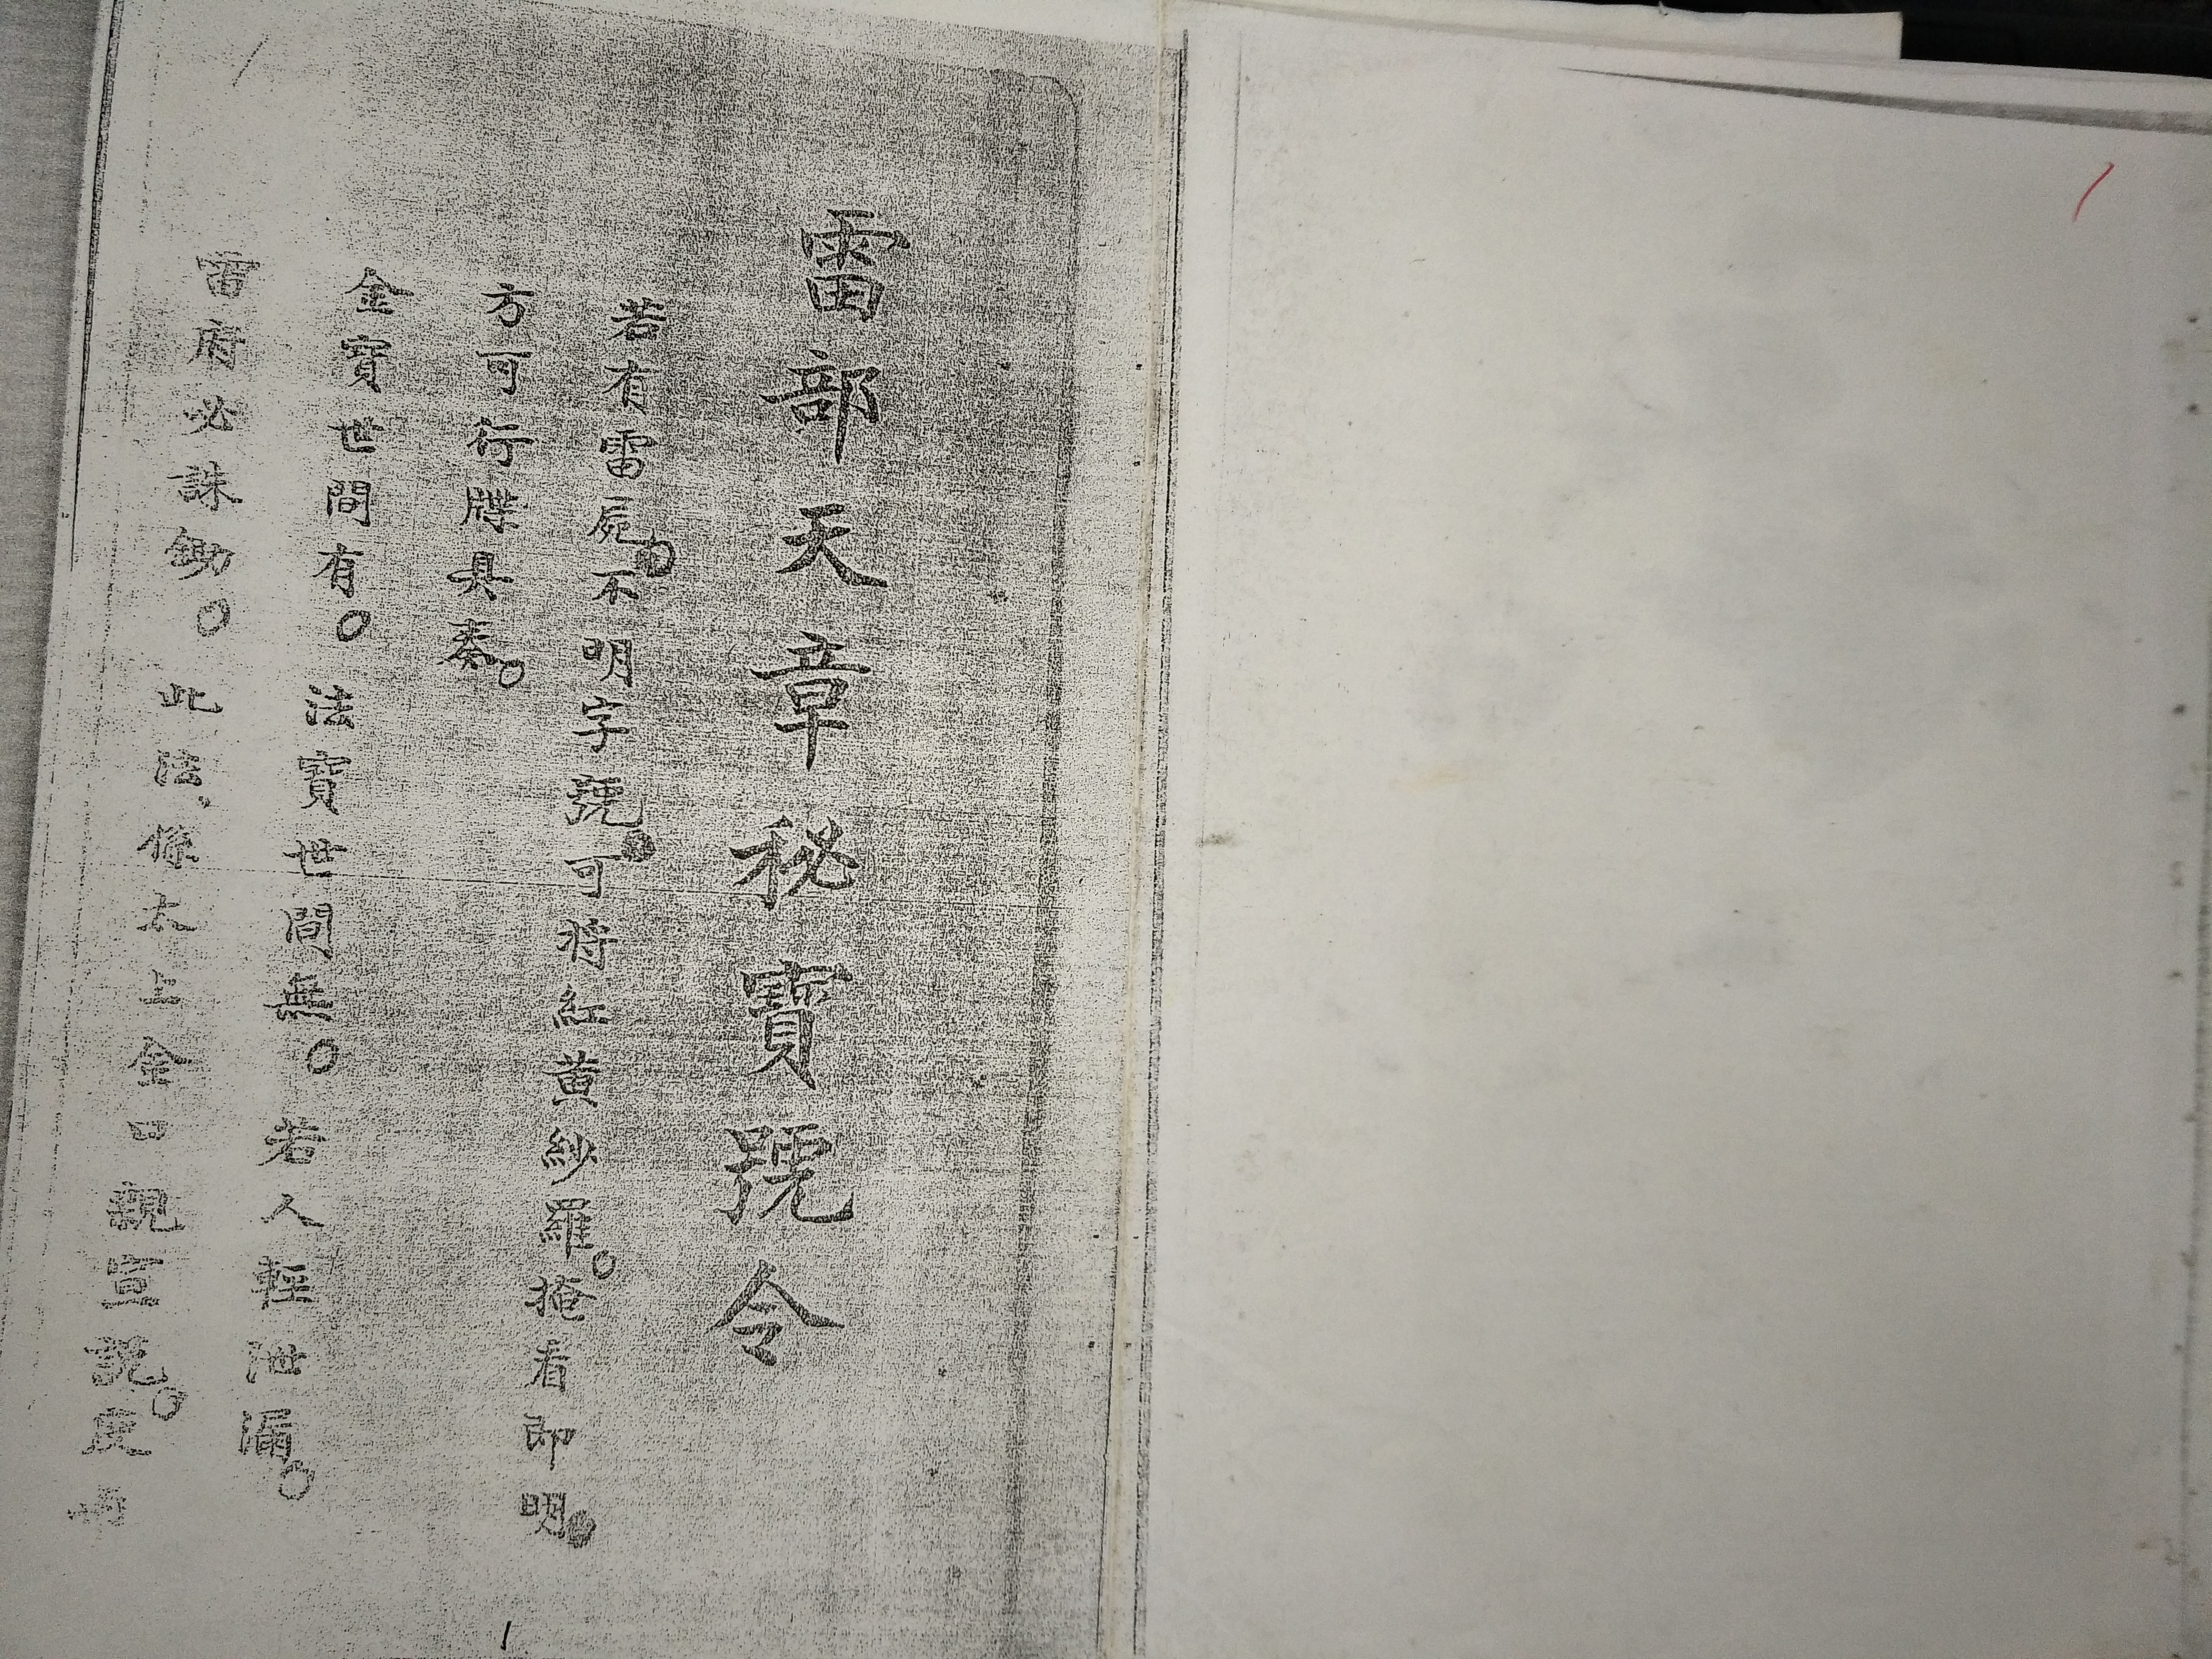 雷部天章秘寶號令
若有雷屍。不明字號。可將紅黃紗羅。掩看即明。
方可行牒具奏。
金寶世間有。法寶世間無。若人輕泄漏。
雷府必誅鋤。此法、係太上金口親宣說。